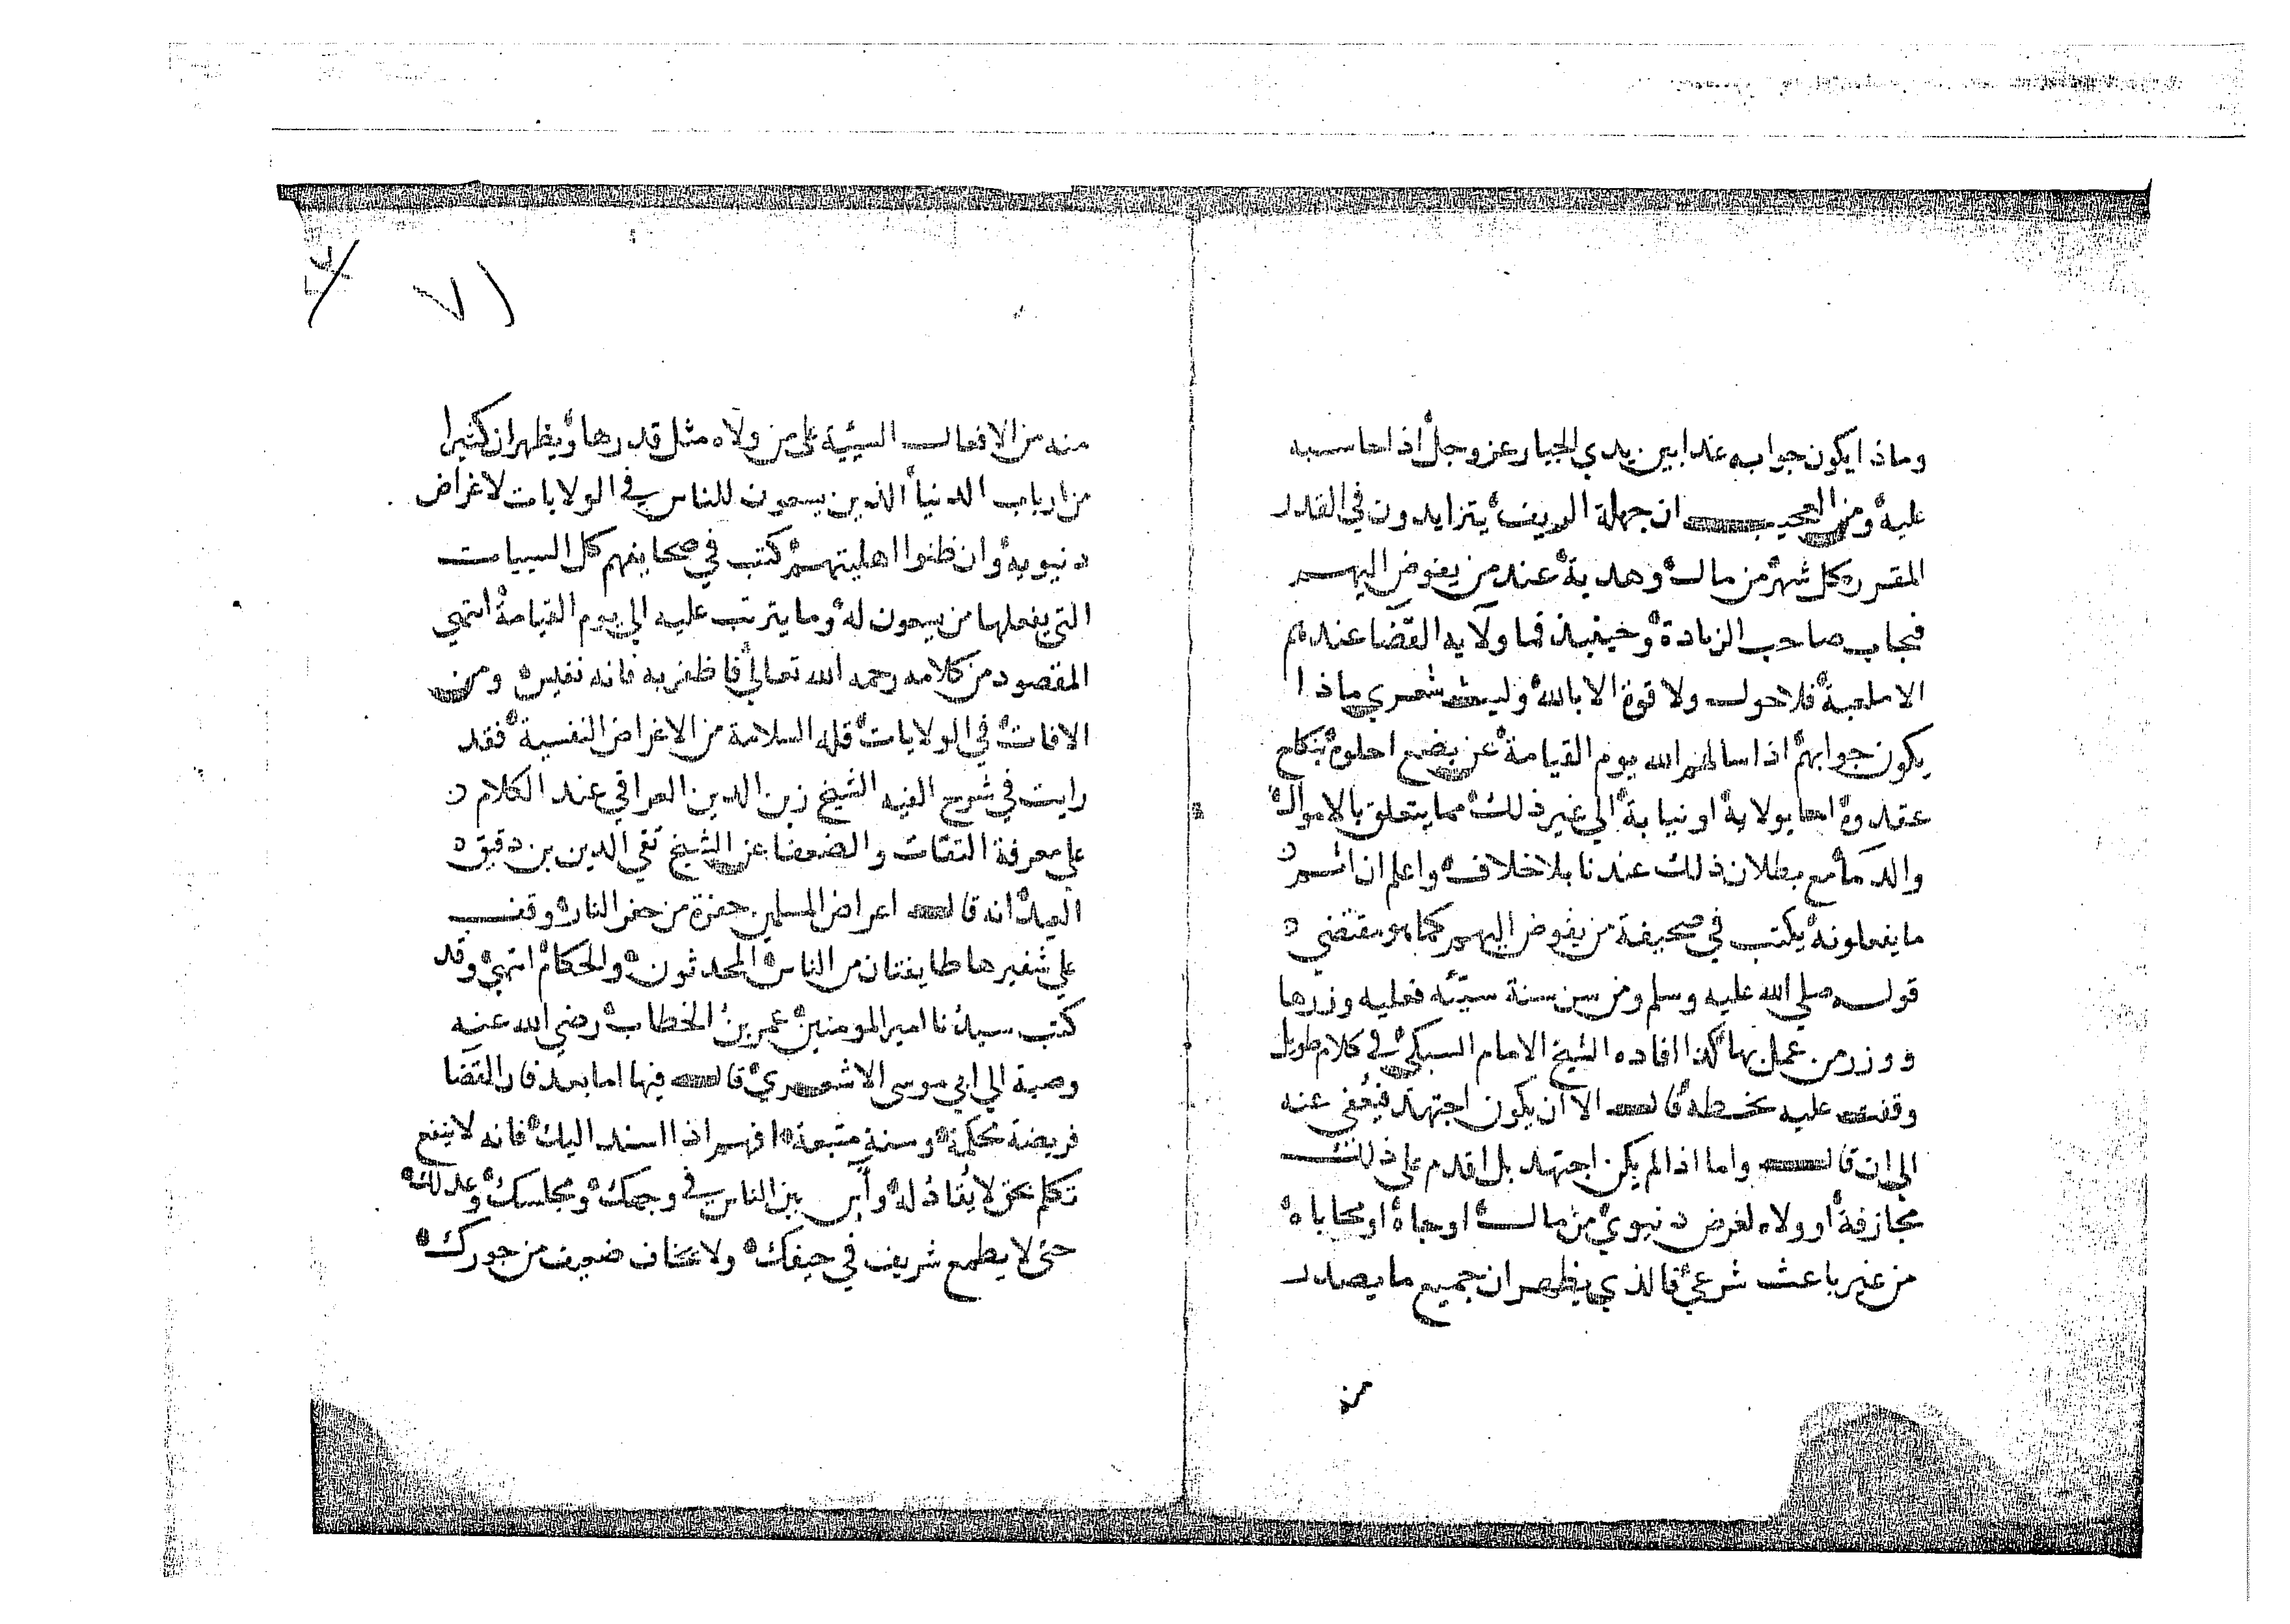 وماذا يكون جوابه غدا بين يدي الجبار عز وجل اذا حاسبه
عليه ومن العجيب ان جهلة الريف يتزايدون في القدر
المقرر كل شهر من مال وهدية عند من يفوض اليهم
فيجاب صاحب الزيادة وحينيذ فما ولاية القضا عندهم
الا ملعبة فلا حول ولا قوة الا بالله وليت شعري ماذا
يكون جوابهم اذا سالهم الله يوم القيامة عن بضع احلوه بنكاح
عقدوه اما بولاية او نيابة الي غير ذلك مما يتعلق بالاموال
والدما مع بطلان ذلك عندنا بلا خلاف واعلم ان اثم
ما يفعلونه يكتب في صحيفة من يفوض اليهم كما هو مقتضي
قوله صلي الله عليه وسلم ومن سن سنة سيئه فعليه وزرها
ووزر من عمل بها كذا افاده الشيخ الامام السبكي في كلام طويل
وقفت عليه بخطه قال الا ان يكون اجتهد فيعفي عنه
الي ان قال واما اذا لم يكن اجتهد بل اقدم علي ذلك
مجازفة او ولاه لغرض دنيوي من مال او جاه او محاباه
من غير باعث شرعي فالذي يظهر ان جميع ما يصدر
من
٧١
منه من الافعال السيية علي من ولاه مثل قدرها ويظهر ان كثيرا
من ارباب الدنيا الذين يسعون للناس في الولايات لاغراض
دنيويه وان ظنوا اهليتهم كتب في صحايفهم كل السييات
التي يفعلها من يسعون له وما يترتب عليه الي يوم القيامة انتهي
المقصود من كلامه رحمه الله تعالي فاظفر به فانه نفيس ومن
الافات في الولايات قله السلامة من الاغراض النفسية فقد
رايت في شرح الفيه الشيخ زين الدين العراقي عند الكلام
علي معرفة الثقات والضعفا عن الشيخ تقي الدين بن دقيق
العيد انه قال اعراض المسلمين حفرة من حفر النار وقف
علي شفيرها طايفتان من الناس المحدثون والحكام انتهي وقد
كتب سيدنا امير المومنين عمر بن الخطاب رضي الله عنه
وصية الي ابي موسي الاشعري قال فيها اما بعد فان القضا
فريضة محكمة وسنة متبعة افهم اذا اسند اليك فانه لا ينفع
تكلم بحق لا نفاذ له وآس بين الناس في وجهك ومجلسك وعدلك
حتي لا يطمع شريف في حيفك ولا يخاف ضعيف من جورك